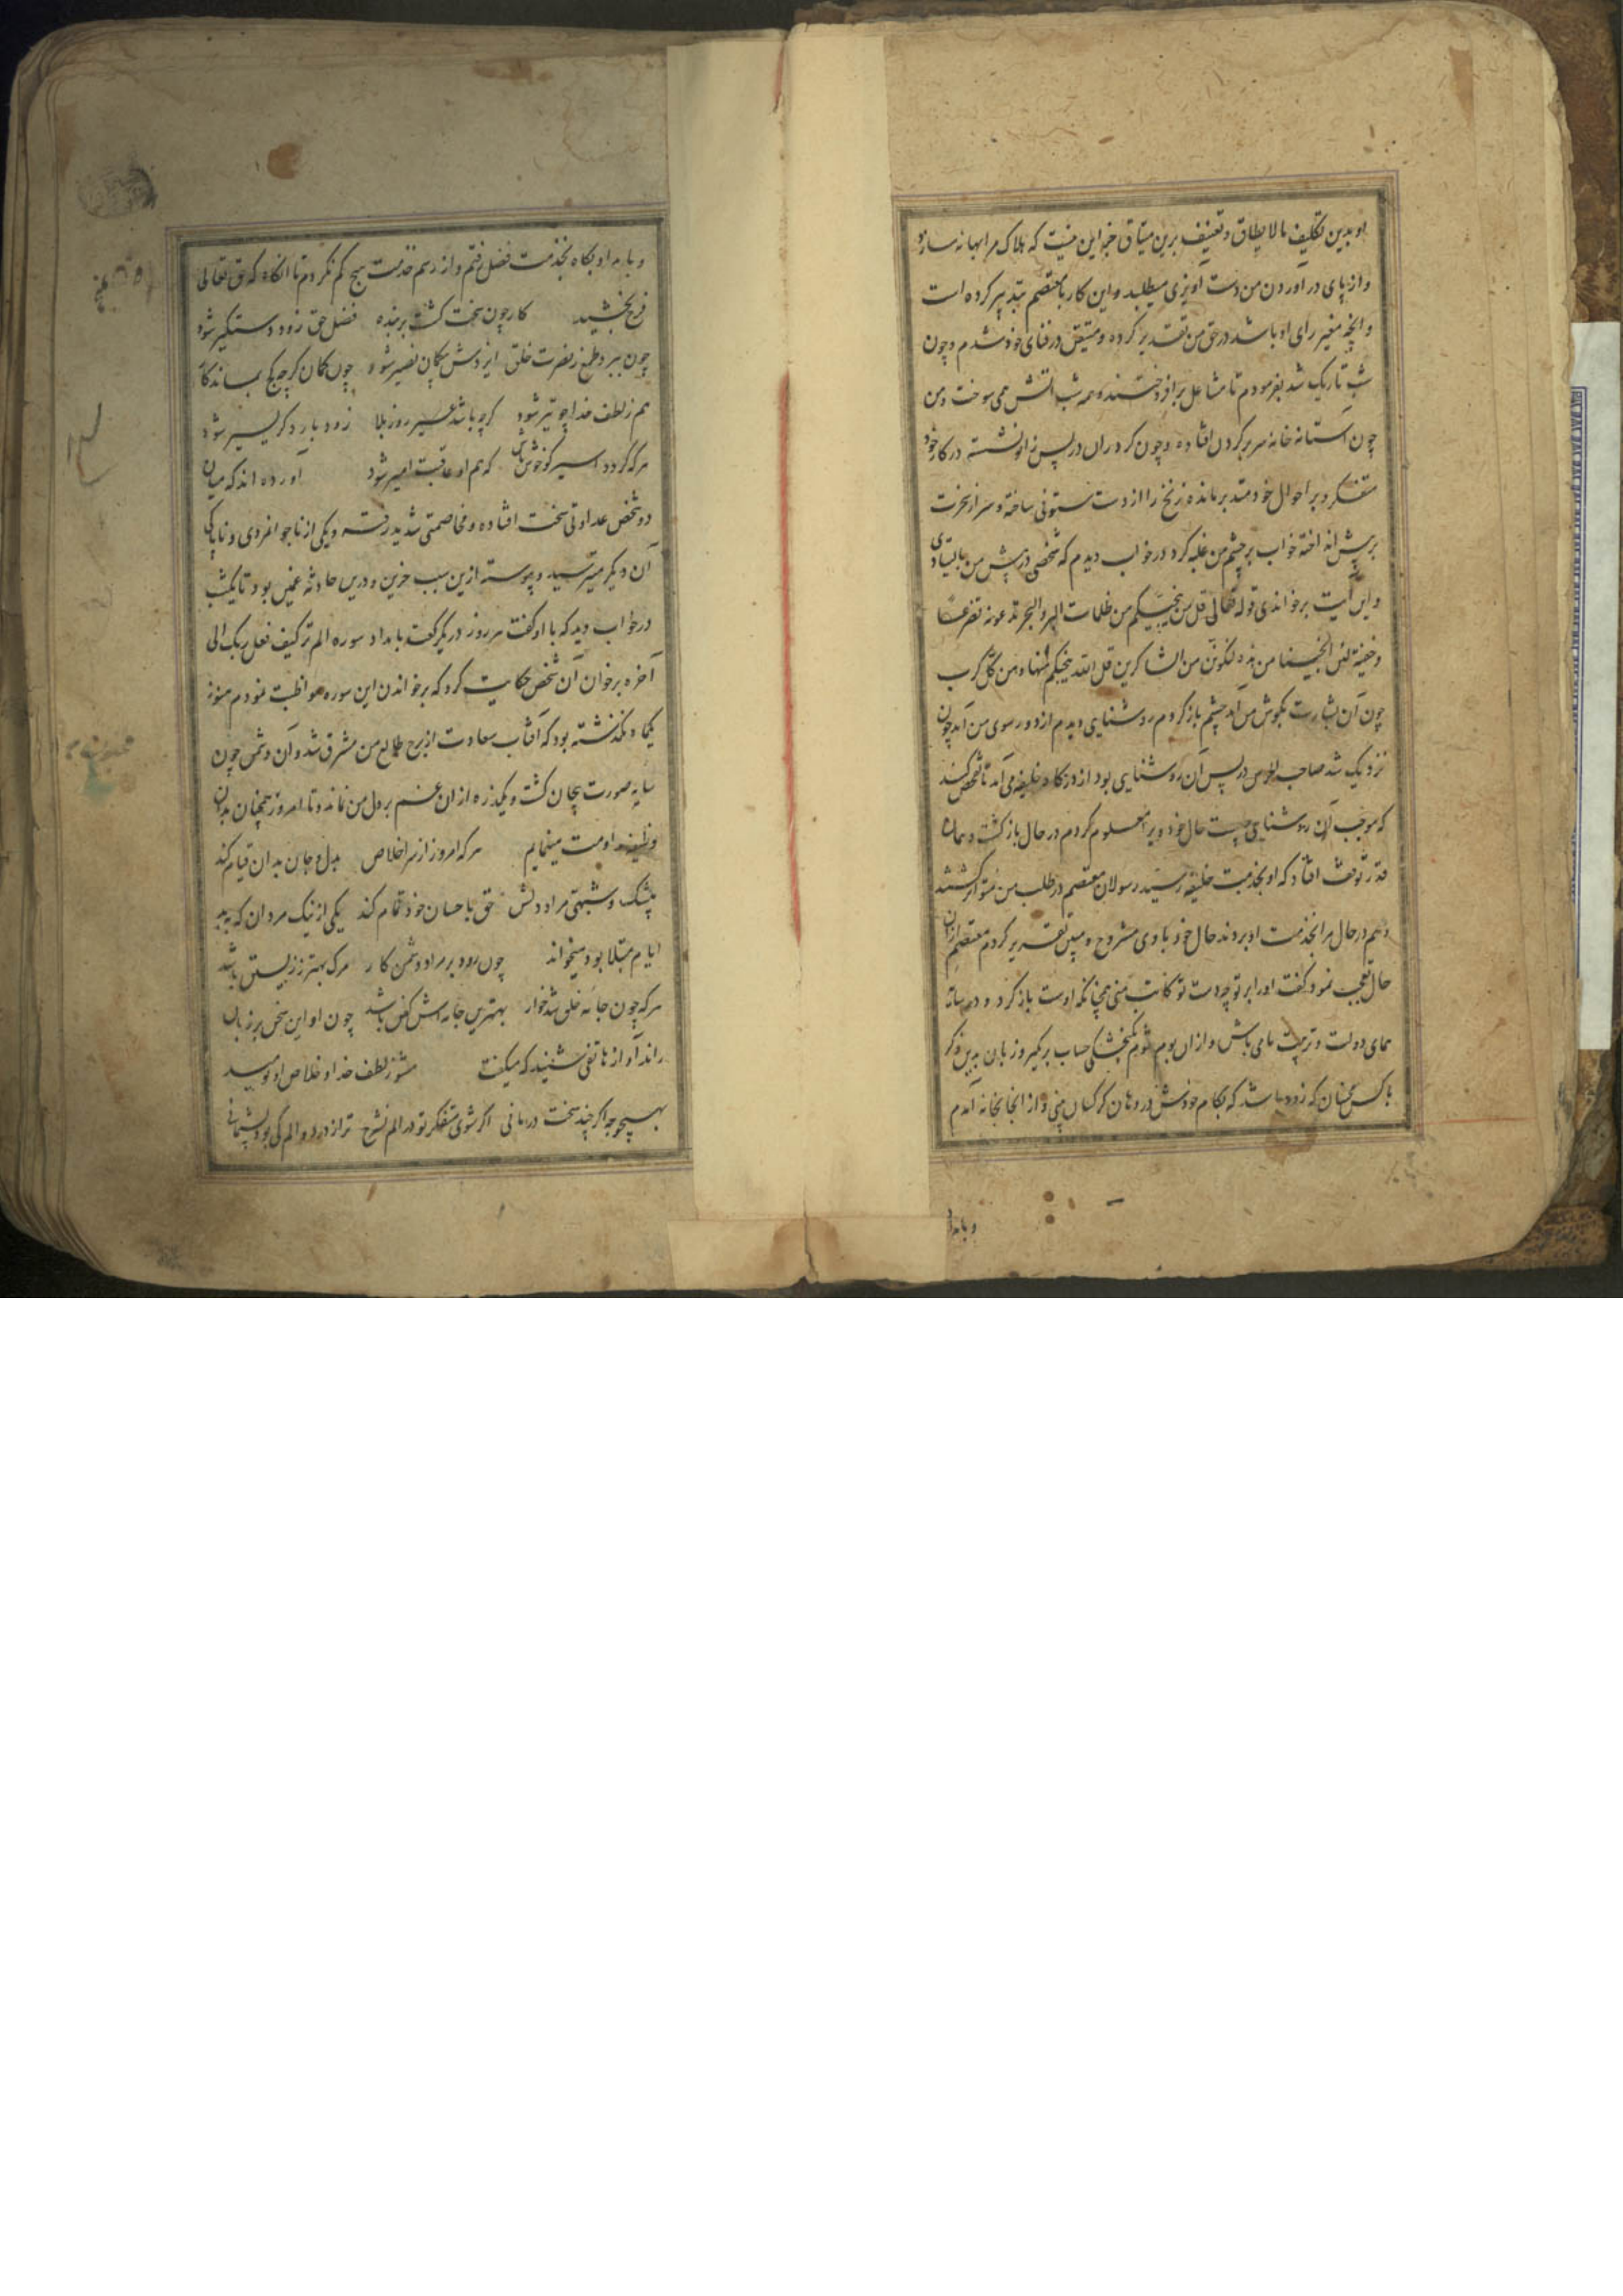 او بدین تکلیف مالایطاق و تعنیف برین میثاق جز این نیست که هلاک مرا بهانه سازد
و از پای در آوردن من دست آویزی میطلبد و این کار با معتصم تدبیر کرده است
و آنچه مغیر رای او باشد در حق من تقدیر کرده و متیقن در فنای خود شدم و چون
شب تاریک شد بفرمودم تا مشاعل بر افروختند و همه شب آتش می سوخت و من
چون آستانه خانه سر بر کردن افتاده و چون کردران در پس زانو نشسته در کار خود
متفکر و بر احوال خود متدبر مانده زنخ را از دست ستونی ساخته و سر از نخوت
در پیش انداخته خواب بر چشم من غلبه کرد در خواب دیدم که شخصی در پیش من بایستادی
و این آیت بر خواندی قوله تعالی قل من ینجیکم من ظلمات البر و البحر تدعونه تضرعا
و خفیة لئن انجینا من هذه لنکونن من الشاکرین قل الله ینجیکم منها و من کل کرب
چون آن بشارت بکوش من آمد چشم باز کردم روشنایی دیدم از دور سوی من آمد چون
نزدیک شد صاحب در پس آن روشنایی بود از درکاه خلیفه می آمد تا تفحص کند
که موجب آن روشنایی چیست حال خود ویرا معلوم کردم در حال باز کشت و همان
قدر توقف افتاد که او بخدمت خلیفه رسید رسولان معتصم در طلب من متواتر شدند
و هم در حال مرا بخدمت او بردند حال خود با وی مشروح و مبین تقریر کردم معتصم از آن
حال تعجب نمود و کفت او را بر تو چه دست تو کاتب منی همچنانکه اوست باز کرد و در سایه
همای دولت و تربیت ما می باش و از ان بوم شوم بکنجشکی حساب بر مکیر و زبان بدین ذکر
باکس مجنبان که زود باشد که بکام خودش در دهان کرکسان بینی و از انجا بخانه آمدم
و بامداد
و بامداد بکاه بخدمت فضل رفتم و از رسم خدمت هیچ کم نکردم تا آنکاه که حق تعالی
فرج بخشید کار چون سخت کشت بر بنده فضل حق زود دستکیر شود
چون ببرد طمع ز نصرت خلق ایزدش بی کمان نصیر شود چون کمان کرچه کج بماند کار
هم ز لطف خدا چو تیر شود کرچه باشد عسیر روز بلا زود بار دکر یسیر شود
هرکه کردد اسیر کو خوش باش که هم او عاقبت امیر شود آورده اند که میان
دو شخص عداوتی سخت افتاده و مخاصمتی شدید رفته و یکی از ناجوانمردی و ناپاکی
آن دیکر میترسید و پیوسته ازین سبب حزین و درین حادثه غمین بود تا یکشب
در خواب دید که با او کفت هر روز در یک رکعت بامداد سوره الم تر کیف فعل ربک الی
آخره بر خوان آن شخص حکایت کرد که بر خواندن این سوره مواظبت نمودم هنوز
یکماه نکذشته بود که آفتاب سعادت از برج طالع من مشرق شد و آن دشمن چون
سایه صورت بیجان کشت و یکذره از ان غم بر دل من نماند و تا امروز همچنان بدان
وظیفه مداومت مینمایم هرکه امروز از سر اخلاص بدل و جان بدان قیام کند
بیشک و شبهتی مراد دلش حق باحسان خود تمام کند یکی از نیک مردان که ببد
ایام مبتلا بود میخواند چون رود بر مراد دشمن کار مرک بهتر ز زیستن باشد
هرکه چون جامه خلق شد خوار بهترین جامه اش کفن باشد چون او این سخن بر زبان
راند آواز هاتفی شنید که میکفت مشو ز لطف خدا و خلاص او نومید
بهیچوجه اکر چند سخت درمانی اکر شوی متفکر تو در الم نشرح ترا ز درد و الم کی بود پشیمانی